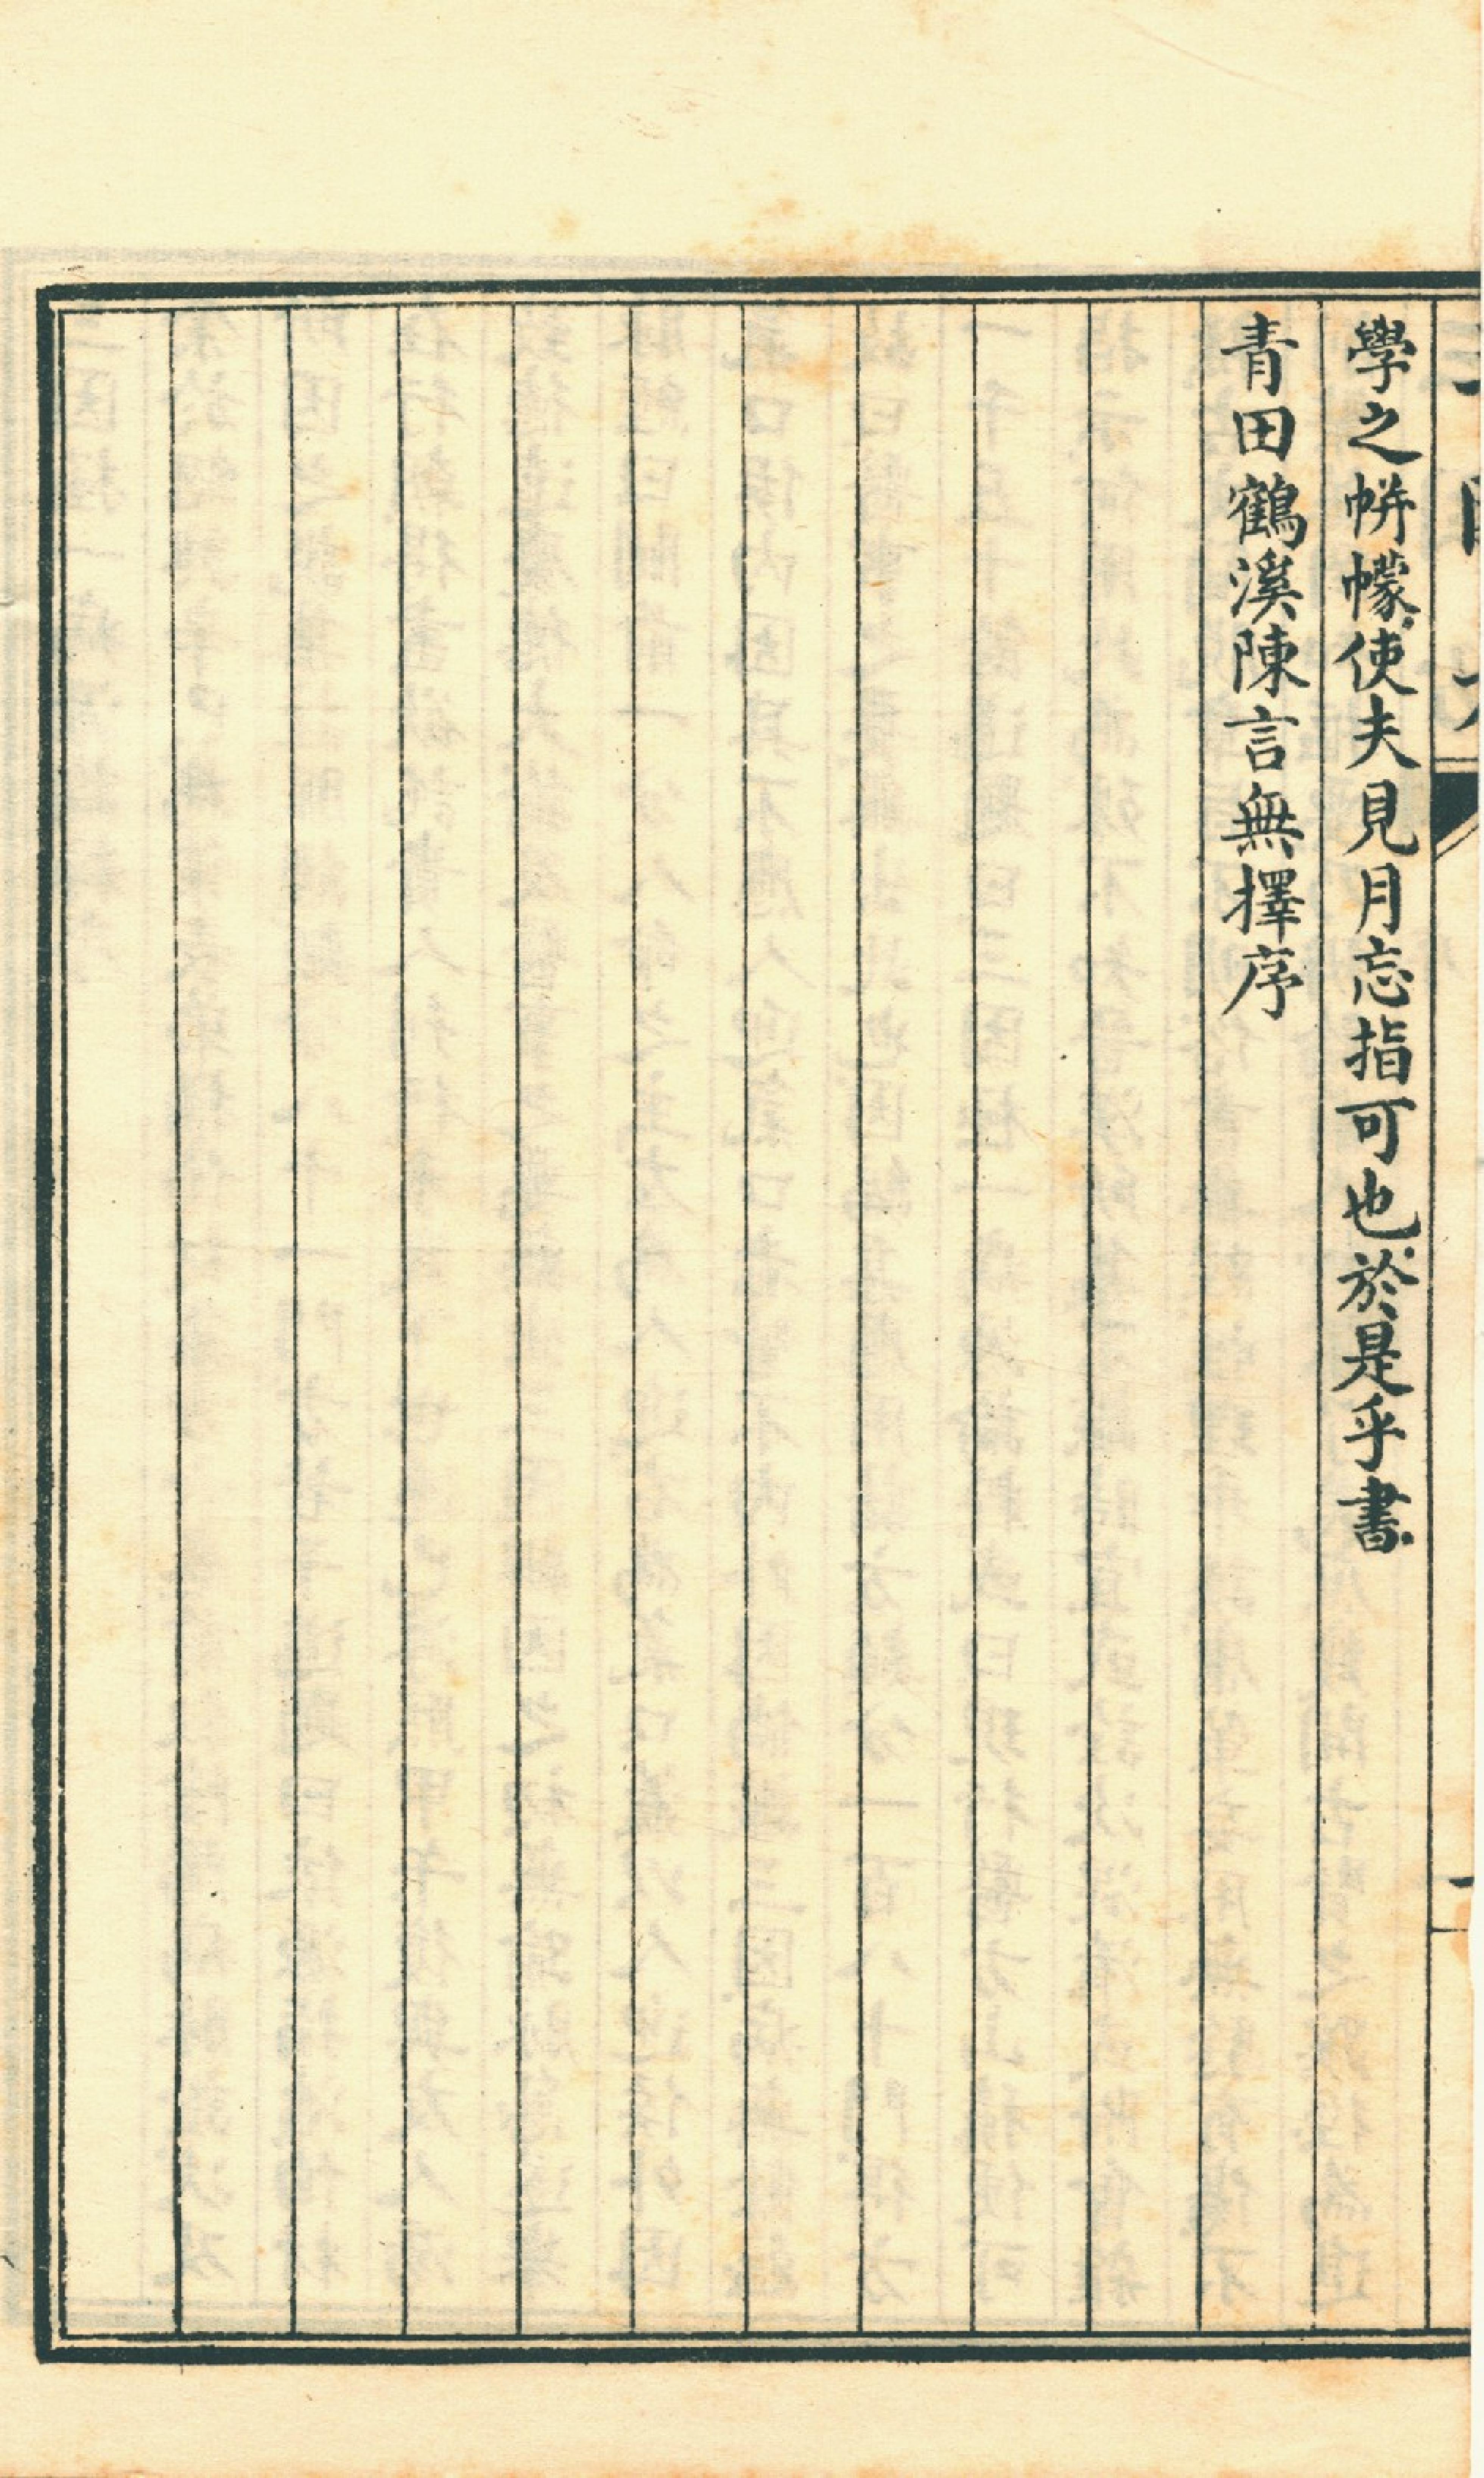 學之帡幪使夫見月忘指可也於是乎書
青田鶴溪陳言無擇序